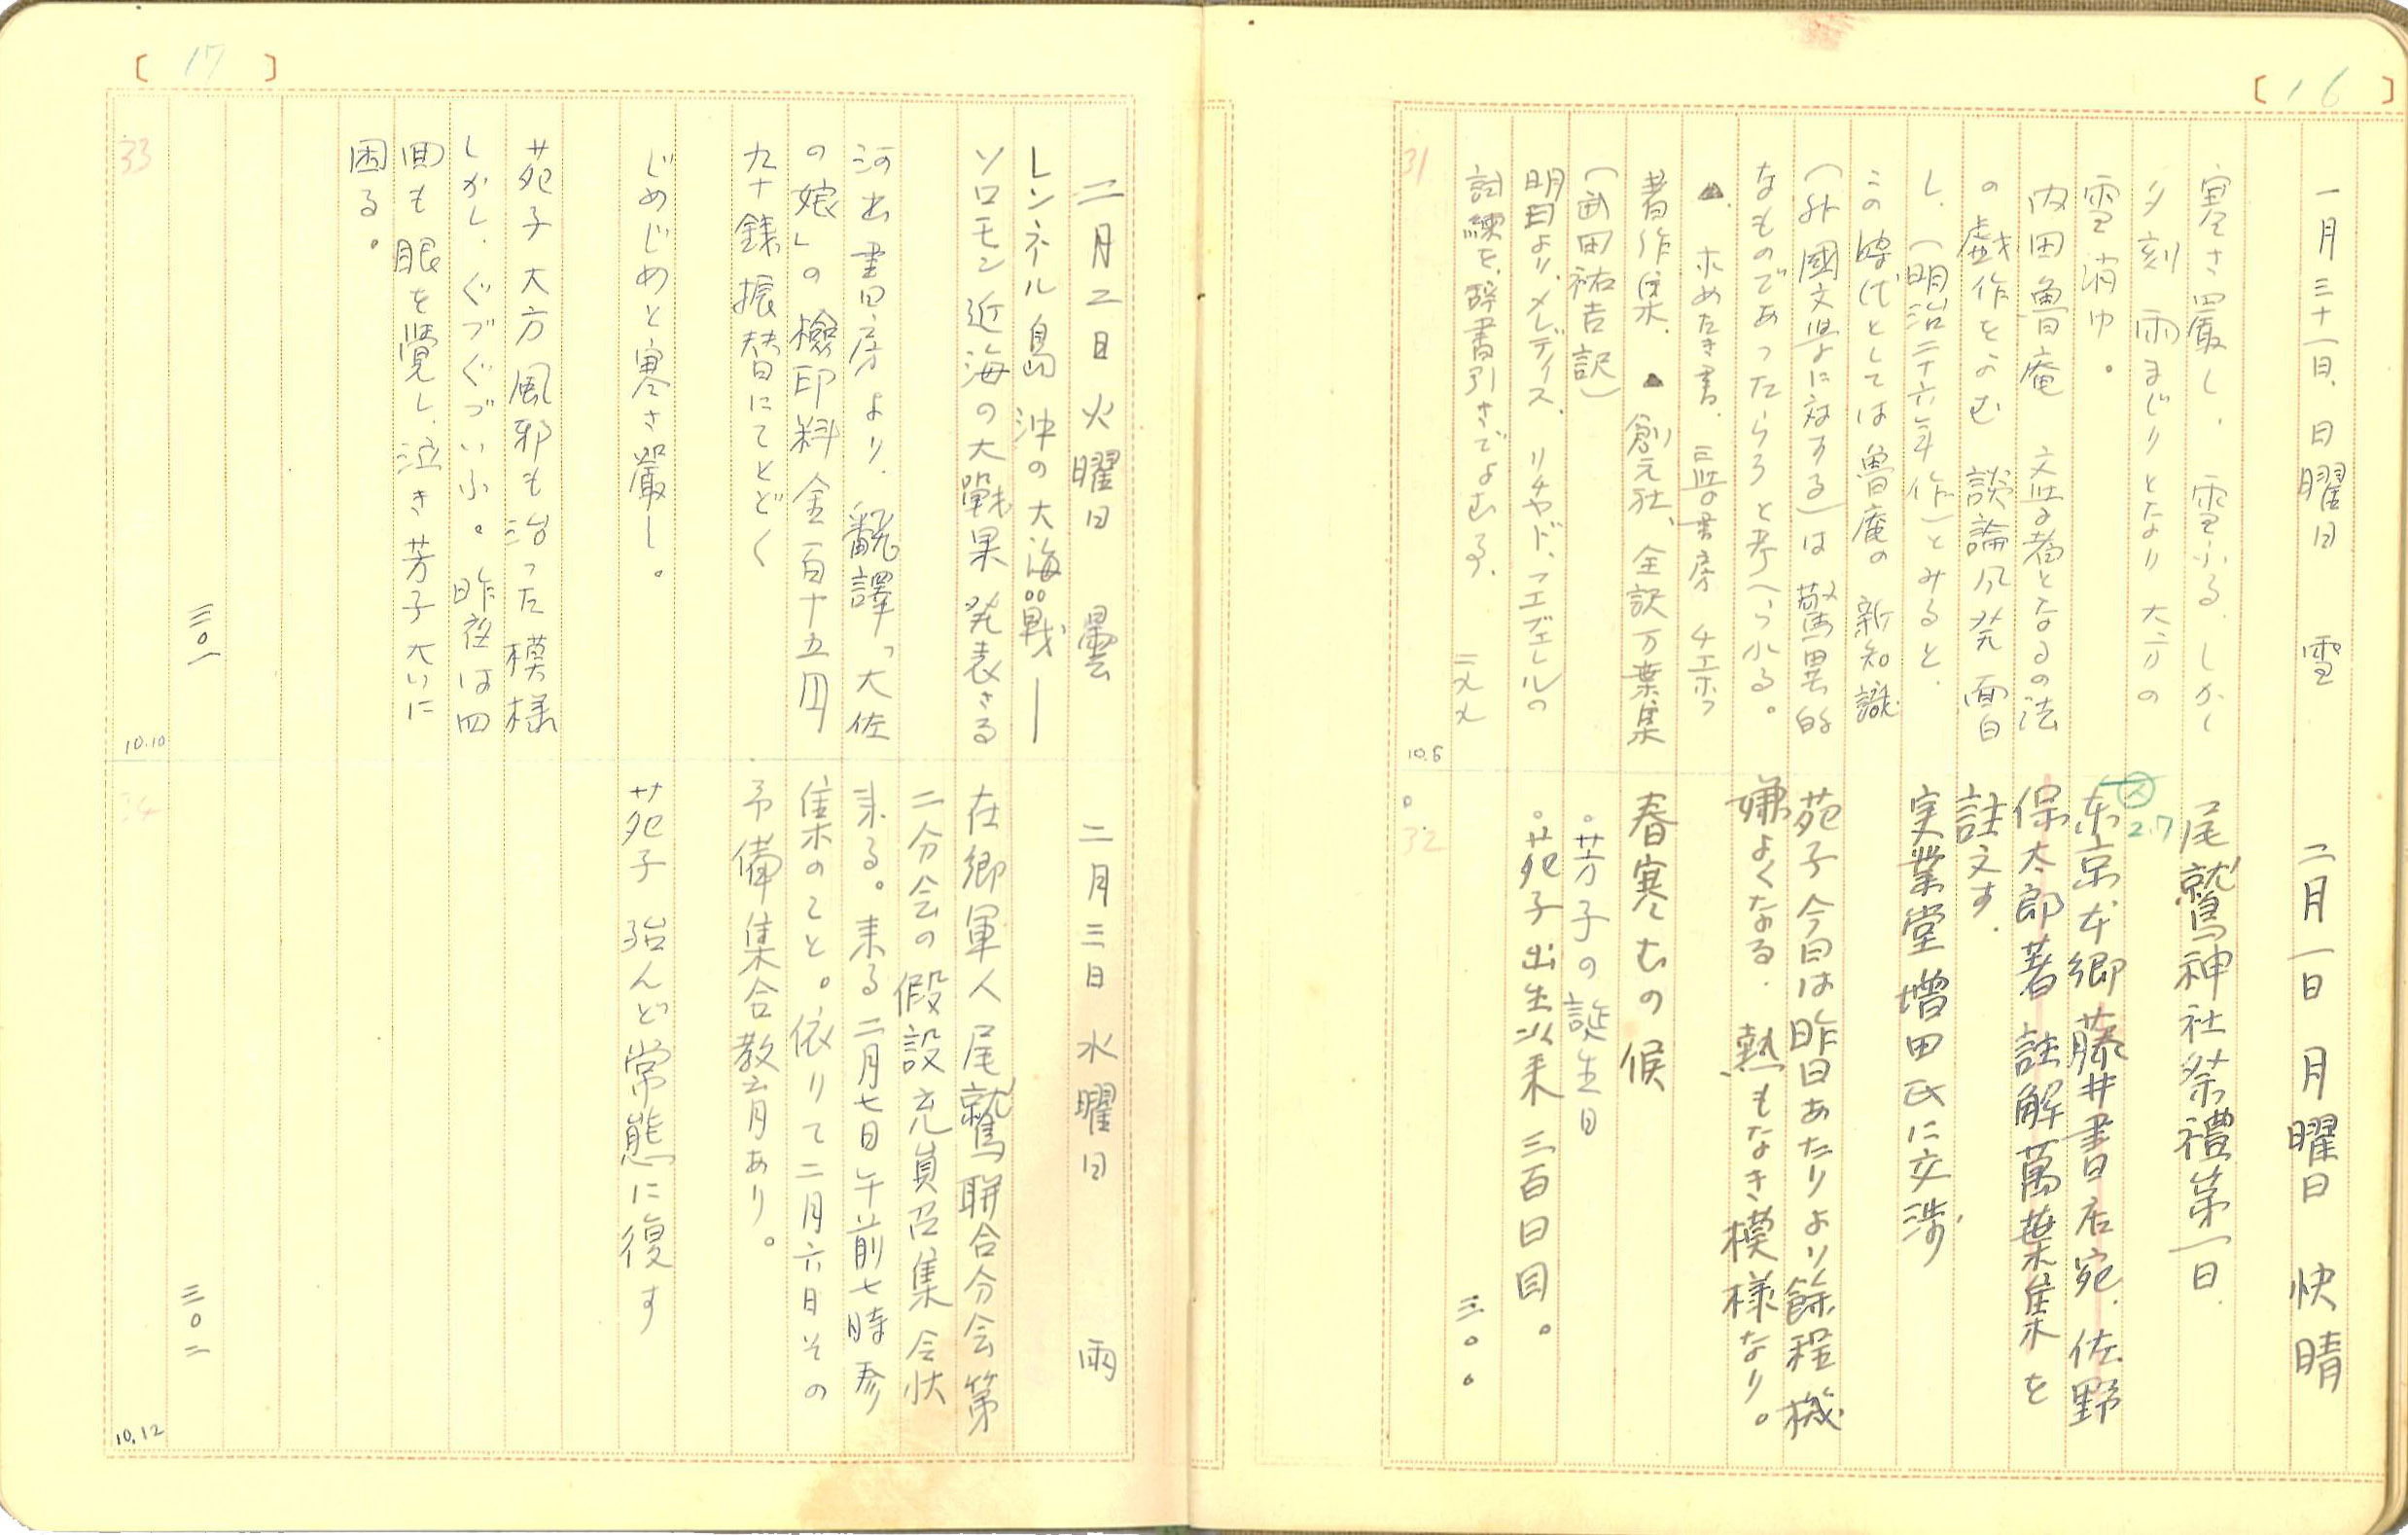 [ 16 ]
一月三十一日、日曜日 雪
寒さ嚴し、雪ふる、しかし
夕刻 雨まじりとなり 大方の
雪消ゆ。
内田魯庵 文学者となるの法
の戯作をよむ 談論風発 面白
し、(明治二十六年作)とみると、
この時代としては魯庵の新知識
(外國文学に対する)は驚異的
なものであったらうと考へられる。
▲、ホめたき書、三学書房 チエホフ
著作集、▲創元社、全訳万葉集
(武田祐吉訳)
明日より、メレディス、リチャド、フエヴェレルの
訓練を、辞書引きでよむる、
二九九
31
10.8
二月一日 月曜日 快晴
尾鷲神社祭禮第一日、
2.7
東京本郷藤井書店宛、佐野
保太郎著 註解萬葉集を
註文す、
実業堂増田氏に交渉
苑子今日は昨日あたりより餘程機
嫌よくなる、熱もなき模様なり。
春寒むの候
。芳子の誕生日
。苑子出生以来三百日目。
三〇〇
32
[ 17 ]
二月二日 火曜日 曇
レンネル島沖の大海戦―
ソロモン近海の大戦果発表さる
河出書房より、飜譯「大佐
の娘」の檢印料金一百十五円
九十錢振替にてとどく
じめじめと寒さ嚴し。
苑子大方風邪も治った模様
しかし、ぐづぐづいふ。昨夜は四
回も眼を覺し、泣き芳子大いに
困る。
三〇一
33
10.10
二月三日 水曜日 雨
在郷軍人尾鷲聯合分会第
二分会の假設充員召集令状
来る。来る二月七日午前七時参
集のこと。依りて二月六日その
予備集合教育あり。
苑子 殆んど常態に復す
三〇二
34
10.12